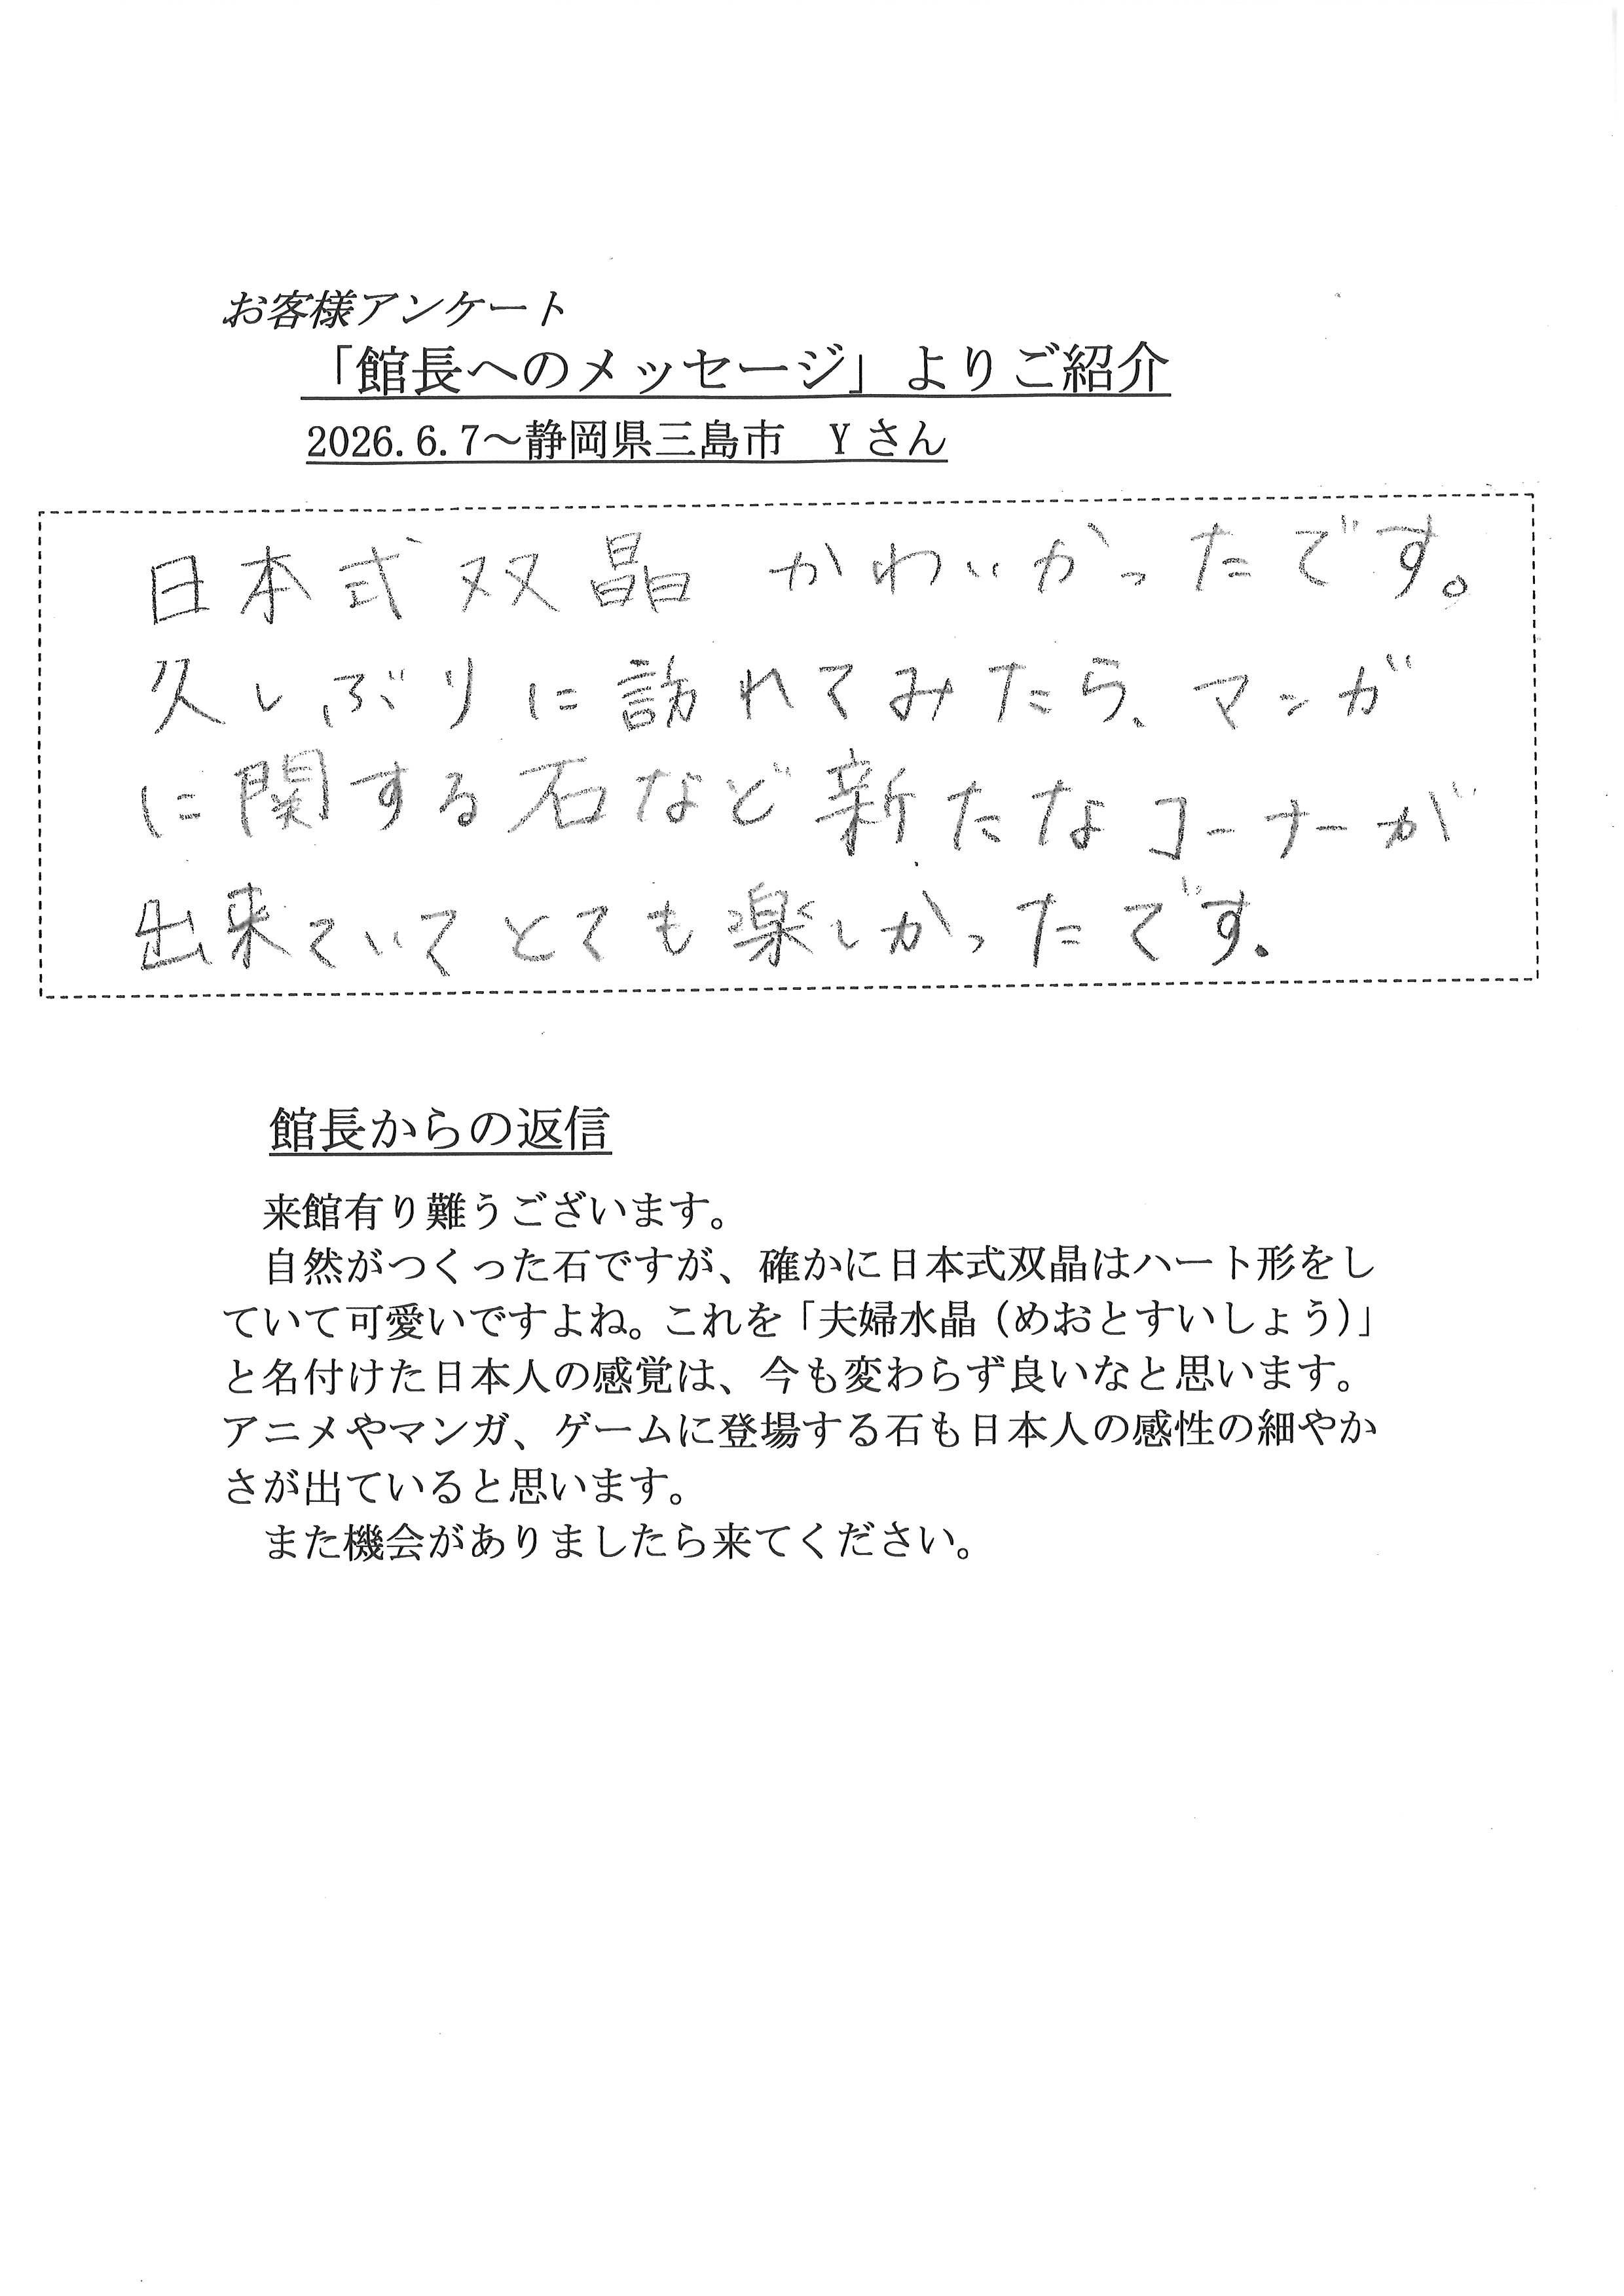 お客様アンケート
「館長へのメッセージ」よりご紹介
2026.6.7～静岡県三島市　Yさん
日本式双晶 かわいかったです。
久しぶりに訪れてみたら、マンガ
に関する石など新たなコーナーが
出来ていてとても楽しかったです。
館長からの返信
来館有り難うございます。
自然がつくった石ですが、確かに日本式双晶はハート形をし
ていて可愛いですよね。これを「夫婦水晶（めおとすいしょう）」
と名付けた日本人の感覚は、今も変わらず良いなと思います。
アニメやマンガ、ゲームに登場する石も日本人の感性の細やか
さが出ていると思います。
また機会がありましたら来てください。